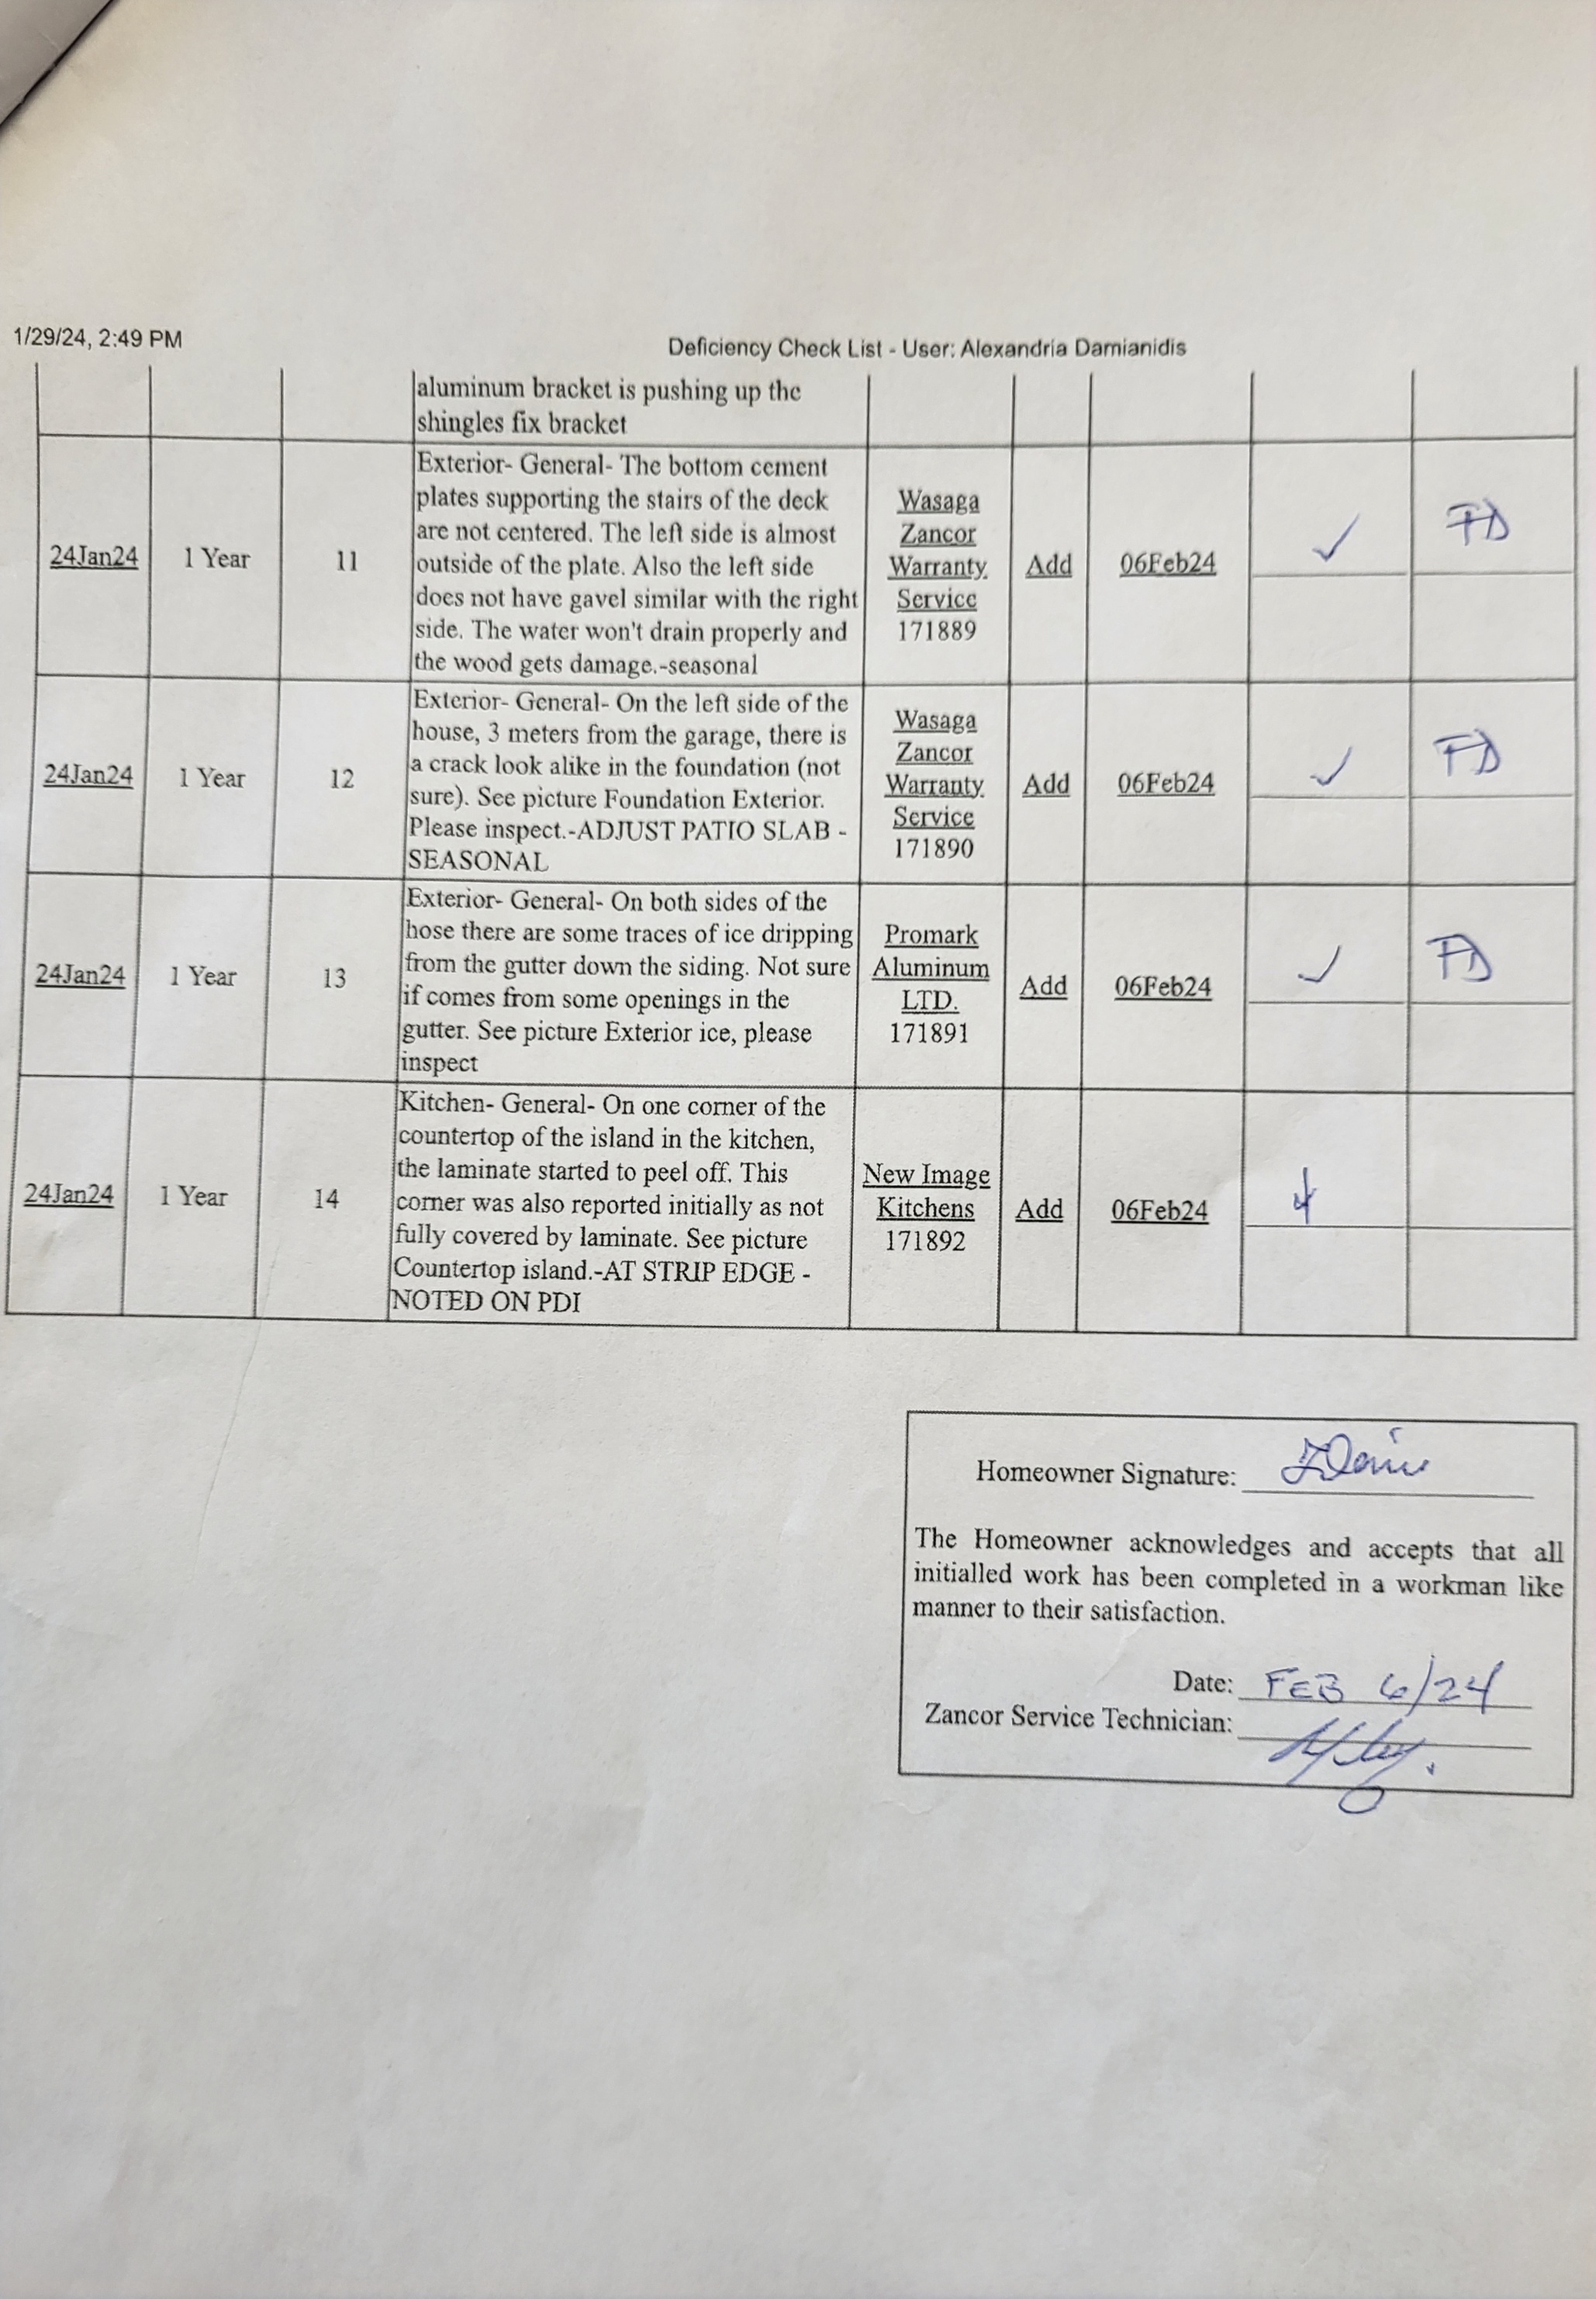 1/29/24, 2:49 PM
Deficiency Check List - User: Alexandria Damianidis
aluminum bracket is pushing up the
shingles fix bracket
24Jan24
1 Year
11
Exterior- General- The bottom cement
plates supporting the stairs of the deck
are not centered. The left side is almost
outside of the plate. Also the left side
does not have gavel similar with the right
side. The water won't drain properly and
the wood gets damage.-seasonal
Wasaga
Zancor
Warranty
Service
171889
Add
06Feb24
✓
FD
24Jan24
1 Year
12
Exterior- General- On the left side of the
house, 3 meters from the garage, there is
a crack look alike in the foundation (not
sure). See picture Foundation Exterior.
Please inspect.-ADJUST PATIO SLAB -
SEASONAL
Wasaga
Zancor
Warranty
Service
171890
Add
06Feb24
✓
FD
24Jan24
1 Year
13
Exterior- General- On both sides of the
hose there are some traces of ice dripping
from the gutter down the siding. Not sure
if comes from some openings in the
gutter. See picture Exterior ice, please
inspect
Promark
Aluminum
LTD.
171891
Add
06Feb24
✓
FD
24Jan24
1 Year
14
Kitchen- General- On one corner of the
countertop of the island in the kitchen,
the laminate started to peel off. This
corner was also reported initially as not
fully covered by laminate. See picture
Countertop island.-AT STRIP EDGE -
NOTED ON PDI
New Image
Kitchens
171892
Add
06Feb24
Homeowner Signature:
The Homeowner acknowledges and accepts that all
initialled work has been completed in a workman like
manner to their satisfaction.
Date: FEB 6/24
Zancor Service Technician: